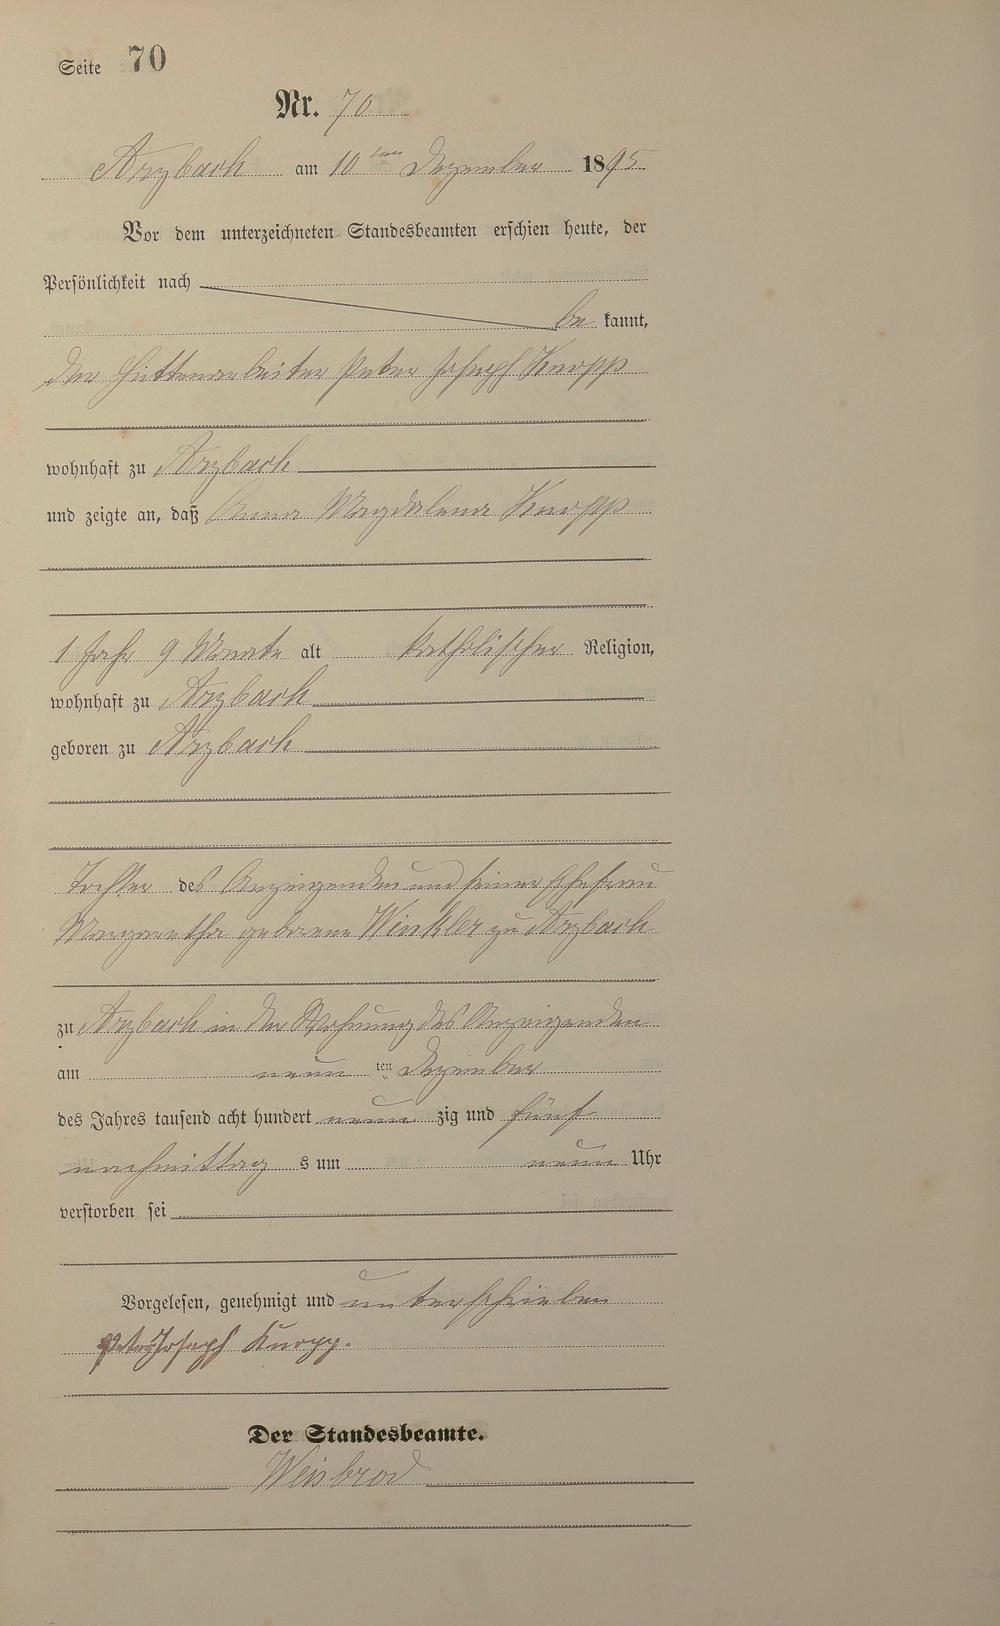 Seite 70
Nr. 70
Arzbach am 10ten Dezember 1895
Vor dem unterzeichneten Standesbeamten erschien heute, der
Persönlichkeit nach
be kannt,
der Hüttenarbeiter Peter Joseph Knopp
wohnhaft zu Arzbach
und zeigte an, daß Anna Magdalena Knopp
1 Jahr 9 Monate alt katholischer Religion,
wohnhaft zu Arzbach
geboren zu Arzbach
Tochter des Anzeigenden und seiner Ehefrau
Margaretha geborene Winkler zu Arzbach
zu Arzbach in der Wohnung des Anzeigenden
am neun ten Dezember
des Jahres tausend acht hundert neun zig und fünf
nachmittag s um neun Uhr
verstorben sei
Vorgelesen, genehmigt und unterschrieben
Peter Joseph Knopp.
Der Standesbeamte.
Weisbrod